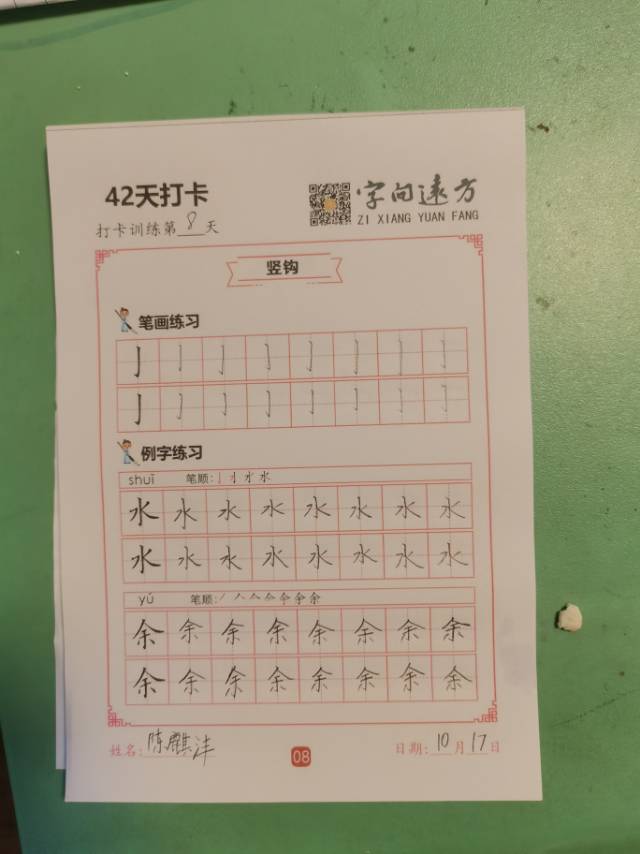 42天打卡
字向远方
ZI XIANG YUAN FANG
打卡训练第8天
竖钩
笔画练习
亅亅亅亅亅亅亅亅
亅亅亅亅亅亅亅亅
例字练习
shuǐ 笔顺:
水水水水水水水水
水水水水水水水水
yú 笔顺:
余余余余余余余余
余余余余余余余余
姓名:陈麒沣
08
日期:10月17日